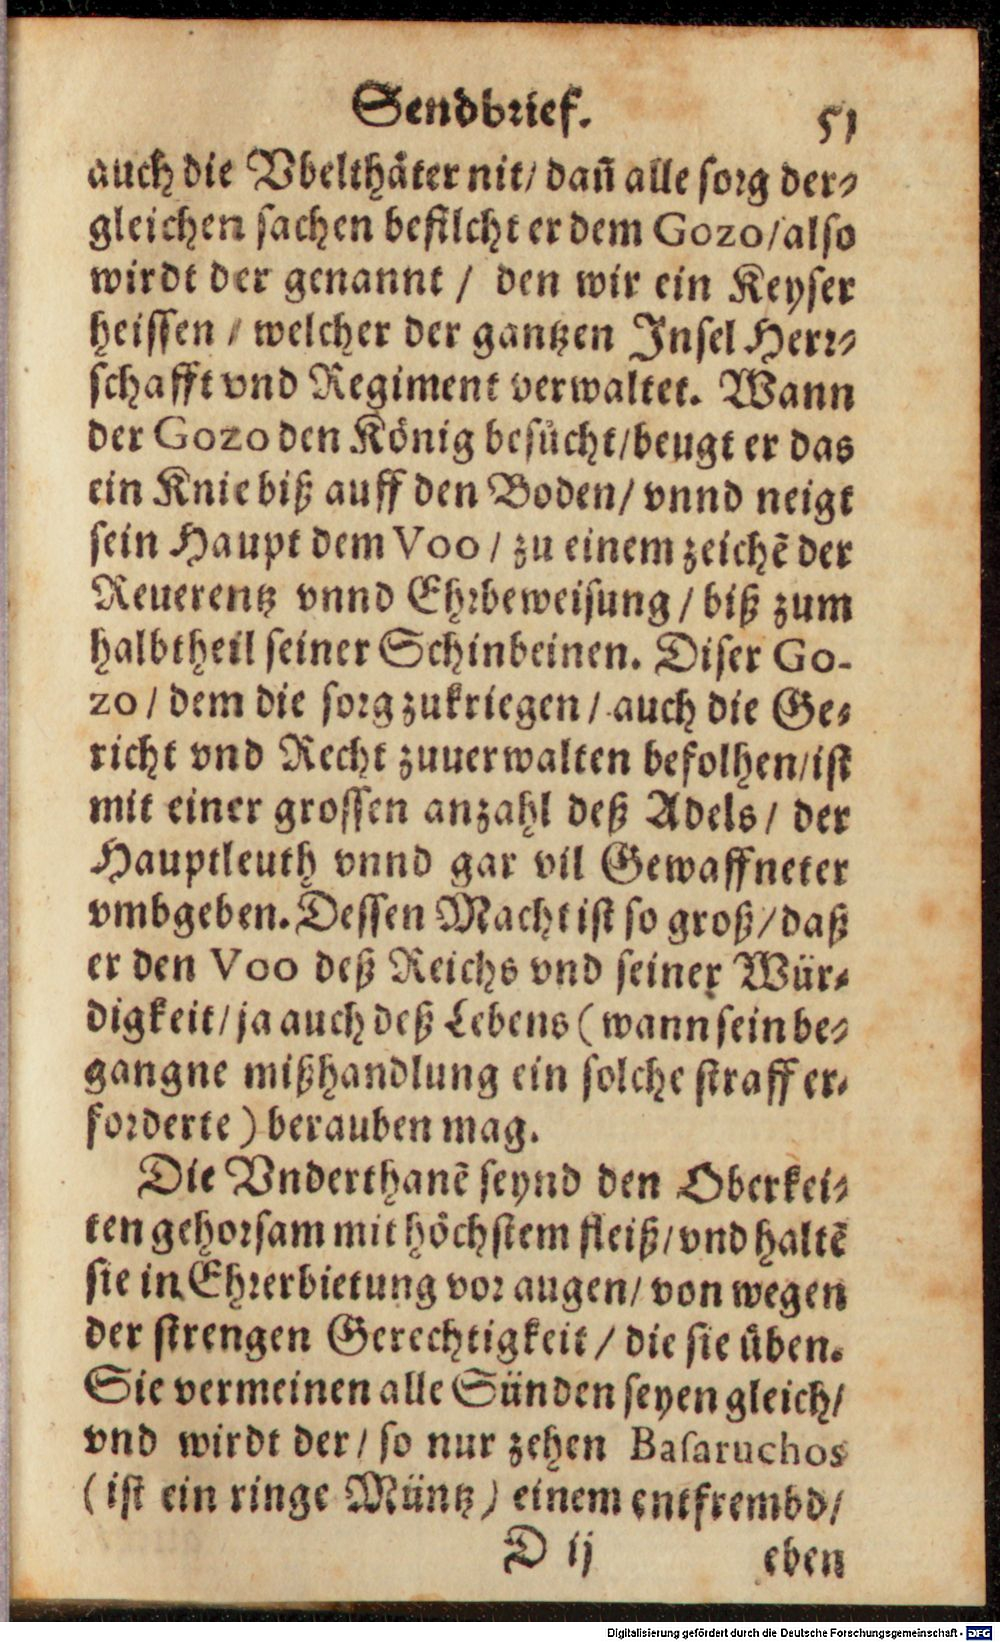 Sendbrief. 51
auch die Vbelthäter nit/ dañ alle sorg der-
gleichen sachen befilcht er dem Gozo/also
wirdt der genannt / den wir ein Keyser
heissen / welcher der gantzen Insel Herr-
schafft vnd Regiment verwaltet. Wann
der Gozo den König besůcht/beugt er das
ein Knie biß auff den Boden/ vnnd neigt
sein Haupt dem Voo / zu einem zeichẽ der
Reuerentz vnnd Ehrbeweisung / biß zum
halbtheil seiner Schinbeinen. Diser Go-
zo / dem die sorg zukriegen / auch die Ge-
richt vnd Recht zuuerwalten befolhen/ist
mit einer grossen anzahl deß Adels / der
Hauptleuth vnnd gar vil Gewaffneter
vmbgeben. Dessen Macht ist so groß/daß
er den Voo deß Reichs vnd seiner Wür-
digkeit/ja auch deß Lebens (wann sein be-
gangne mißhandlung ein solche straff er-
forderte) berauben mag.
Die Vnderthanẽ seynd den Oberkei-
ten gehorsam mit höchstem fleiß/vnd haltẽ
sie in Ehrerbietung vor augen/ von wegen
der strengen Gerechtigkeit / die sie üben.
Sie vermeinen alle Sünden seyen gleich/
vnd wirdt der/ so nur zehen Basaruchos
(ist ein ringe Müntz) einem entfrembd/
D ij eben
Digitalisierung gefördert durch die Deutsche Forschungsgemeinschaft - DFG